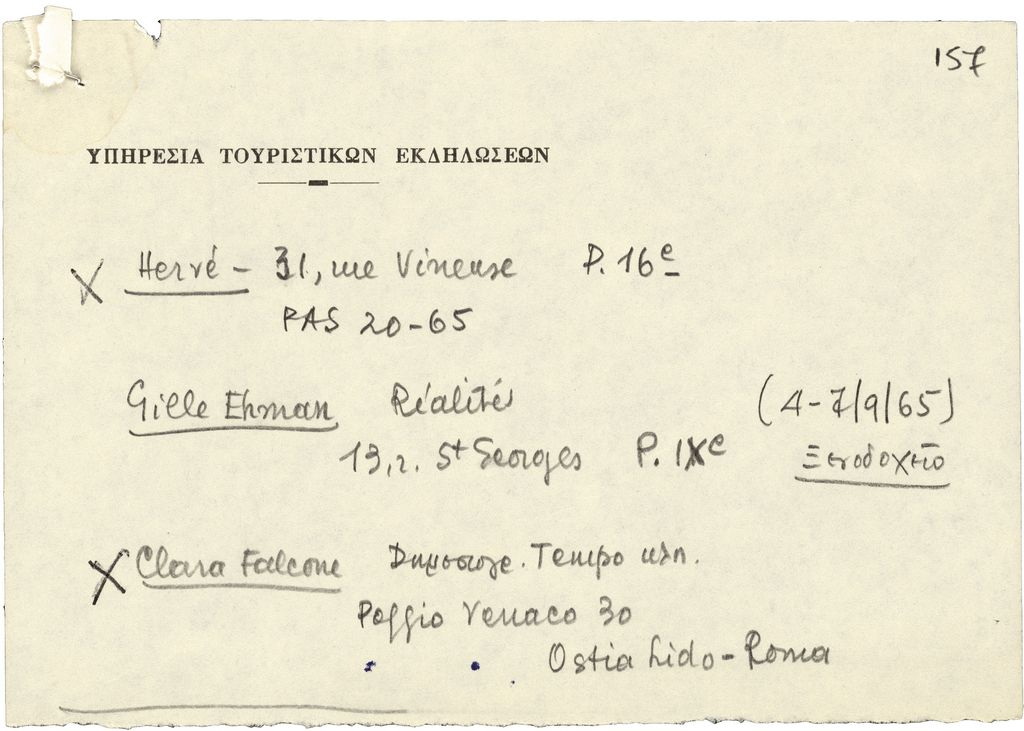 157
ΥΠΗΡΕΣΙΑ ΤΟΥΡΙΣΤΙΚΩΝ ΕΚΔΗΛΩΣΕΩΝ
X Hervé - 31, rue Vineuse P. 16e
PAS 20-65
Gille Ehman Réalités (4-7/9/65)
13, r. St Georges P. IXe Ξενοδοχείο
X Clara Falcone Δημοσιογρ. Tempo κλπ.
Poggio 30
Ostia Lido - Roma